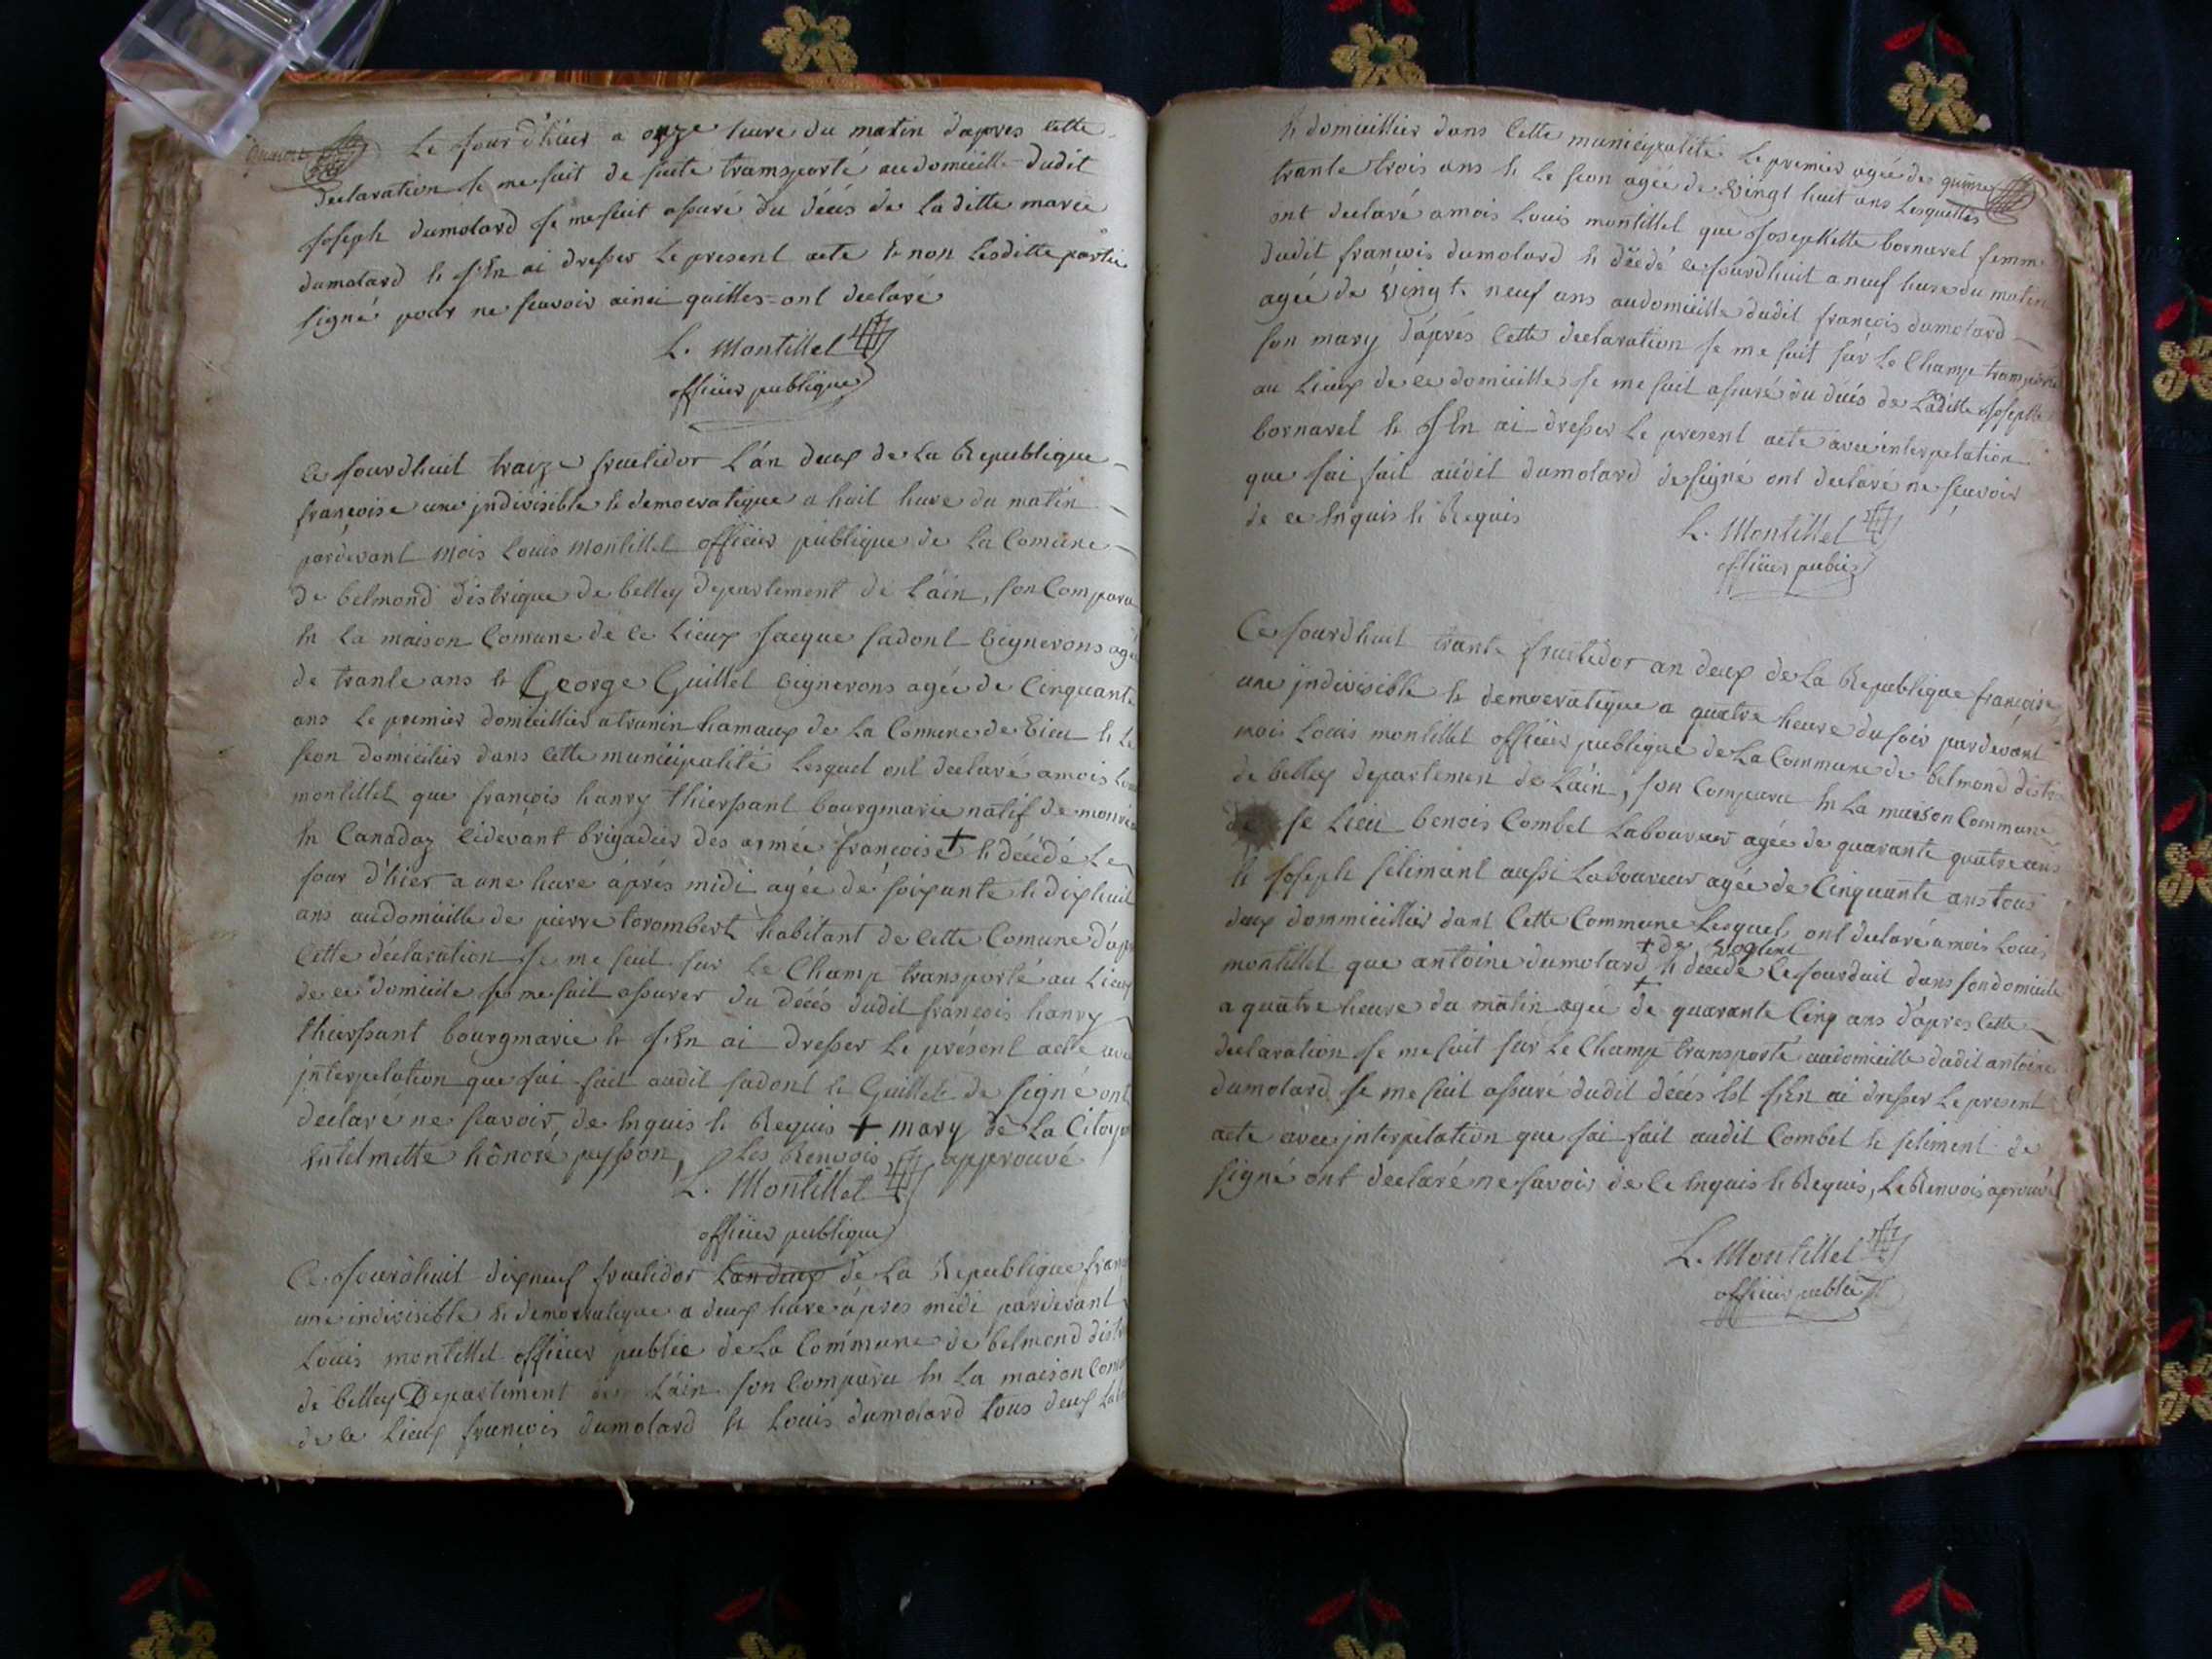 Le jour d'hier a onze heure du matin d'apres cette
declaration je me suit de suite transporté au domicille dudit
joseph dumolard je me suit assuré du décés de la ditte marie
dumolard & j'en ai dresser le present acte & non lesditte partie
signé pour ne scavoir ainsi quilles ont declaré
L. Montillet
officier publique
Ce jourdhuit traize fructidor L'an deux de La Republique
françoise une jndivisible & democratique a huit hure du matin
pardevant mois Louis Montillet officier publique de La Comune
de belmond distrique de belley departement de L'ain, son Comparu
en La maison Comune de ce Lieux jacque jadont vignerons agé
de trante ans & George Guillet vignerons agée de Cinquante
ans Le premier domicillier a tranin hamaux de La Comune de vieu & Le
secon domicilier dans Cette municipalité Lesquel ont declaré a mois Louis
montillet que françois hanry thierssant bourgmarie natif de
en Canadaz cidevant brigadier des armée françoise + & décédé Le
jour d'hier a une hure après midi agée de soixante & dixhuit
ans au domicille de pierre torombert habitant de Cette Comune d'apr
Cette déclaration je me suit sur Le Champ transporté au Lieux
de ce domicile je me suit assurer du décés dudit françois hanry
thierssant bourgmarie & j'en ai dresser le présent acte ave
jnterpelation que jai fait audit jadont & Guillet de signé ont
declaré ne scavoir de enquis & Requis + mary de La Citoy
antelmette hônoré peysson, Les Renvois approuvé
L. Montillet
officier publique
Ce jourdhuit dixneuf fructidor L'an deux de La Republique fran
une indivisible & democratique a deux hure après midi pardevant
Louis montillet officier publie de La Commune de belmond distr
de belley Departement L'ain son Comparu en La maison Com
de ce Lieux françois dumolard & Louis dumolard tous deux Lab
& domicillier dans Cette municipalité Le premier agée de
trante trois ans & Le secon agée de vingt huit ans Lesquelles
ont declaré a mois Louis montillet que josephette bornarel femme
dudit françois dumolard & décédé ce jourdhuit a neuf hure du matin
agée de vingt neuf ans au domicille dudit françois dumolard
son mary d'aprés Cette declaration je me suit sur Le Champ transporté
au Lieux de ce domicille je me suit assuré du décés de Laditte josephte
bornarel & j'en ai dresser Le present acte avec interpelation
que jai fait audit dumolard de signé ont declaré ne scavoir
de ce enquis & Requis
L. Montillet
officier public
Ce jourdhuit trante fructidor an deux de La Republique françoise
une jndivisible & democratique a quatre heure du soir pardevant
mois Louis montillet officier publique de La Commune de belmond distr
de belley departemen de L'ain, son Comparu en La maison Commune
de se Lieu benois Combet Laboureur agée de quarante quatre ans
& joseph sélimant aussi Laboureur agée de Cinquante ans tous
deux dommicillier dant Cette Commune Lesquel ont declaré a mois Louis
+ de voglent
montillet que antoine dumolard & décédé Cejourduit dans son domicile
a quatre heure du matin agée de quarante Cinq ans d'apres Cette
declaration je me suit sur Le Champ transporte au domicille dudit antoine
dumolard je me suit assuré dudit décés Est j'en ai dresser Le present
acte avec jnterpelation que jai fait audit Combet & seliment de
signé ont declaré ne savoir de Ce enquis & Requis, Le Renvois aprouvé
L. Montillet
officier public